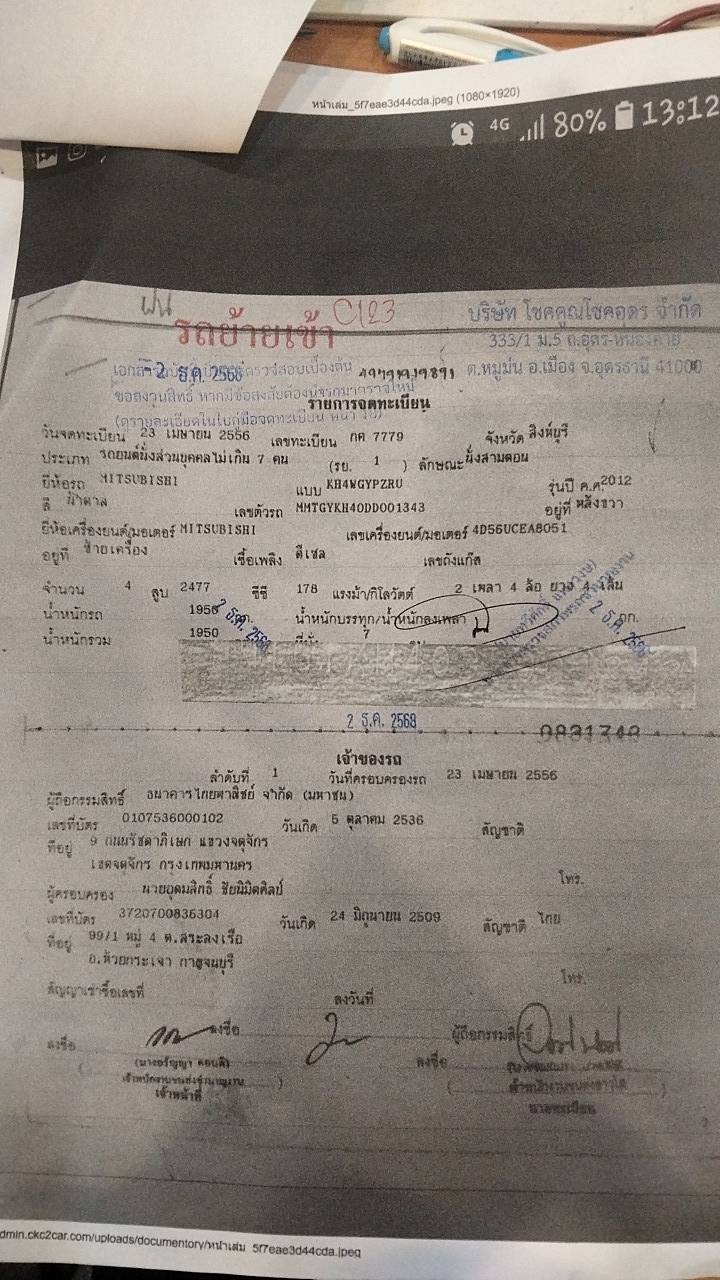 หน้าเล่ม_5f7eae3d44cda.jpeg (1080×1920)
4G 80% 13:12
ฝน
C123
รถย้ายเข้า
บริษัท โชคคูณโชคอุดร จำกัด
333/1 ม.5 ถ.อุดร-หนองคาย
ต.หมูม่น อ.เมือง จ.อุดรธานี 41000
2 ธ.ค. 2568
รายการจดทะเบียน
วันจดทะเบียน 23 เมษายน 2556 เลขทะเบียน กศ 7779 จังหวัด สิงห์บุรี
ประเภท รถยนต์นั่งส่วนบุคคลไม่เกิน 7 คน (รย. 1 ) ลักษณะ นั่งสามตอน
ยี่ห้อรถ MITSUBISHI แบบ KH4WGYPZRU รุ่นปี ค.ศ 2012
สี น้ำตาล เลขตัวรถ MMTGYKH40DD001343 อยู่ที่ หลังขวา
ยี่ห้อเครื่องยนต์/มอเตอร์ MITSUBISHI เลขเครื่องยนต์/มอเตอร์ 4D56UCEA8051
อยู่ที่ ซ้ายเครื่อง เชื้อเพลิง ดีเซล เลขถังแก๊ส
จำนวน 4 สูบ 2477 ซีซี 178 แรงม้า/กิโลวัตต์ 2 เพลา 4 ล้อ ยาง 4 เส้น
น้ำหนักรถ 1950 กก. น้ำหนักบรรทุก/น้ำหนักลงเพลา กก.
น้ำหนักรวม 1950 ที่นั่ง 7
2 ธ.ค. 2568
2 ธ.ค. 2568
2 ธ.ค. 2568
เจ้าของรถ
ลำดับที่ 1 วันที่ครอบครองรถ 23 เมษายน 2556
ผู้ถือกรรมสิทธิ์ ธนาคารไทยพาณิชย์ จำกัด (มหาชน)
เลขที่บัตร 0107536000102 วันเกิด 5 ตุลาคม 2536 สัญชาติ
ที่อยู่ 9 ถนนรัชดาภิเษก แขวงจตุจักร
เขตจตุจักร กรุงเทพมหานคร
โทร.
ผู้ครอบครอง นายอุดมสิทธิ์ ชัยนิมิตศิลป์
เลขที่บัตร 3720700836304 วันเกิด 24 มิถุนายน 2509 สัญชาติ ไทย
ที่อยู่ 99/1 หมู่ 4 ต.สระลงเรือ
อ.ห้วยกระเจา กาญจนบุรี
โทร.
สัญญาเช่าซื้อเลขที่ ลงวันที่
ผู้ถือกรรมสิทธิ์
ลงชื่อ ลงชื่อ ลงชื่อ
เจ้าหน้าที่ นายทะเบียน
dmin.ckc2car.com/uploads/documentory/หน้าเล่ม_5f7eae3d44cda.jpeg